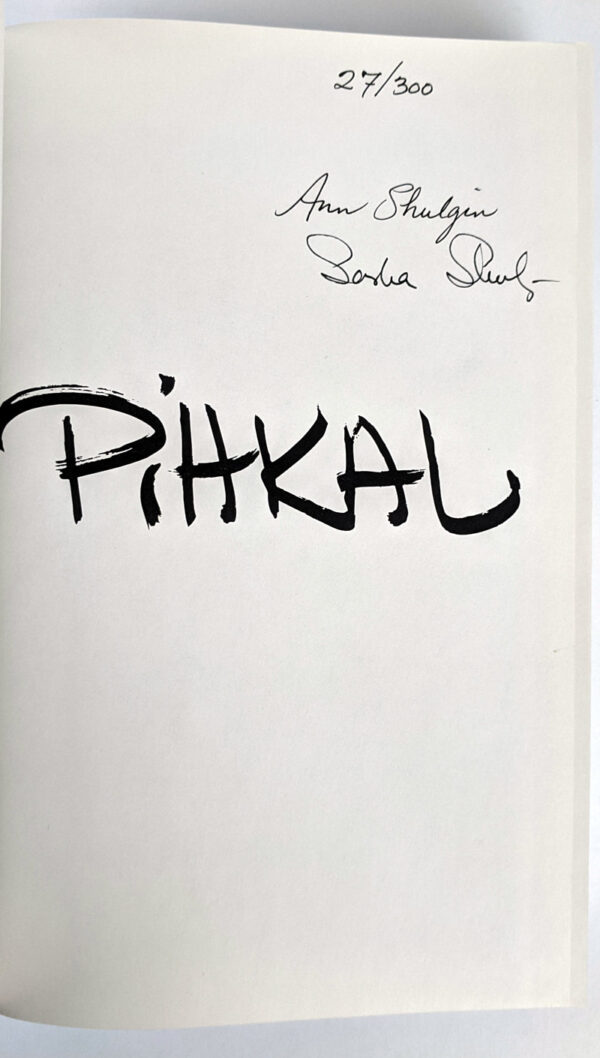 27/300
Ann Shulgin
Sasha Shulg
PiHKAL